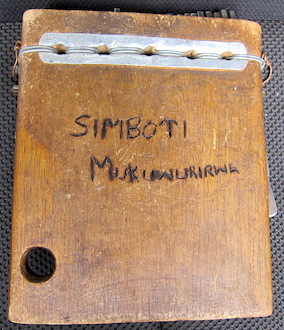 SIMBOTI
MUKUWURIRWA